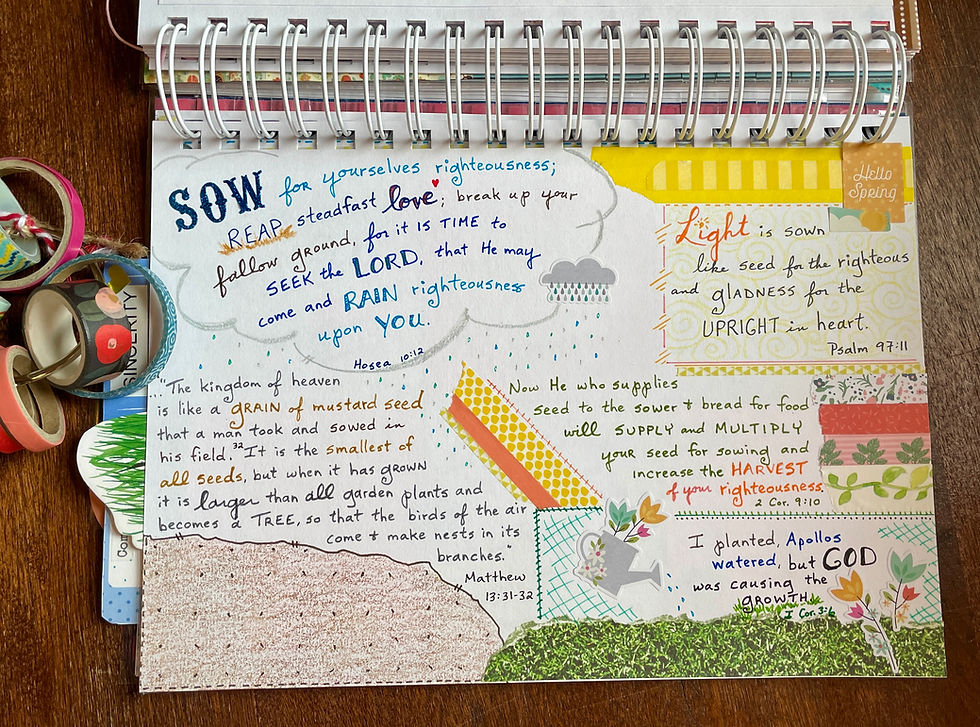 SOW for yourselves righteousness;
REAP steadfast love; break up your
fallow ground, for it IS TIME to
SEEK the LORD, that He may
come and RAIN righteousness
upon YOU.
Hosea 10:12
Hello
Spring
Light is sown
like seed for the righteous
and glADNESS for the
UPRIGHT in heart.
Psalm 97:11
..."The kingdom of heaven
is like a GRAIN of mustard seed
that a man took and sowed in
his field. 32 It is the smallest of
all seeds, but when it has grown
it is larger than all garden plants and
becomes a TREE, so that the birds of the air
come & make nests in its
branches."
Matthew
13:31-32
Now He who supplies
seed to the sower & bread for food
will SUPPLY and MULTIPLY
your seed for sowing and
increase the HARVEST
of your righteousness.
2 Cor. 9:10
I planted, Apollos
watered, but GOD
was causing the
growth.
I Cor. 3:6
SINCERITY